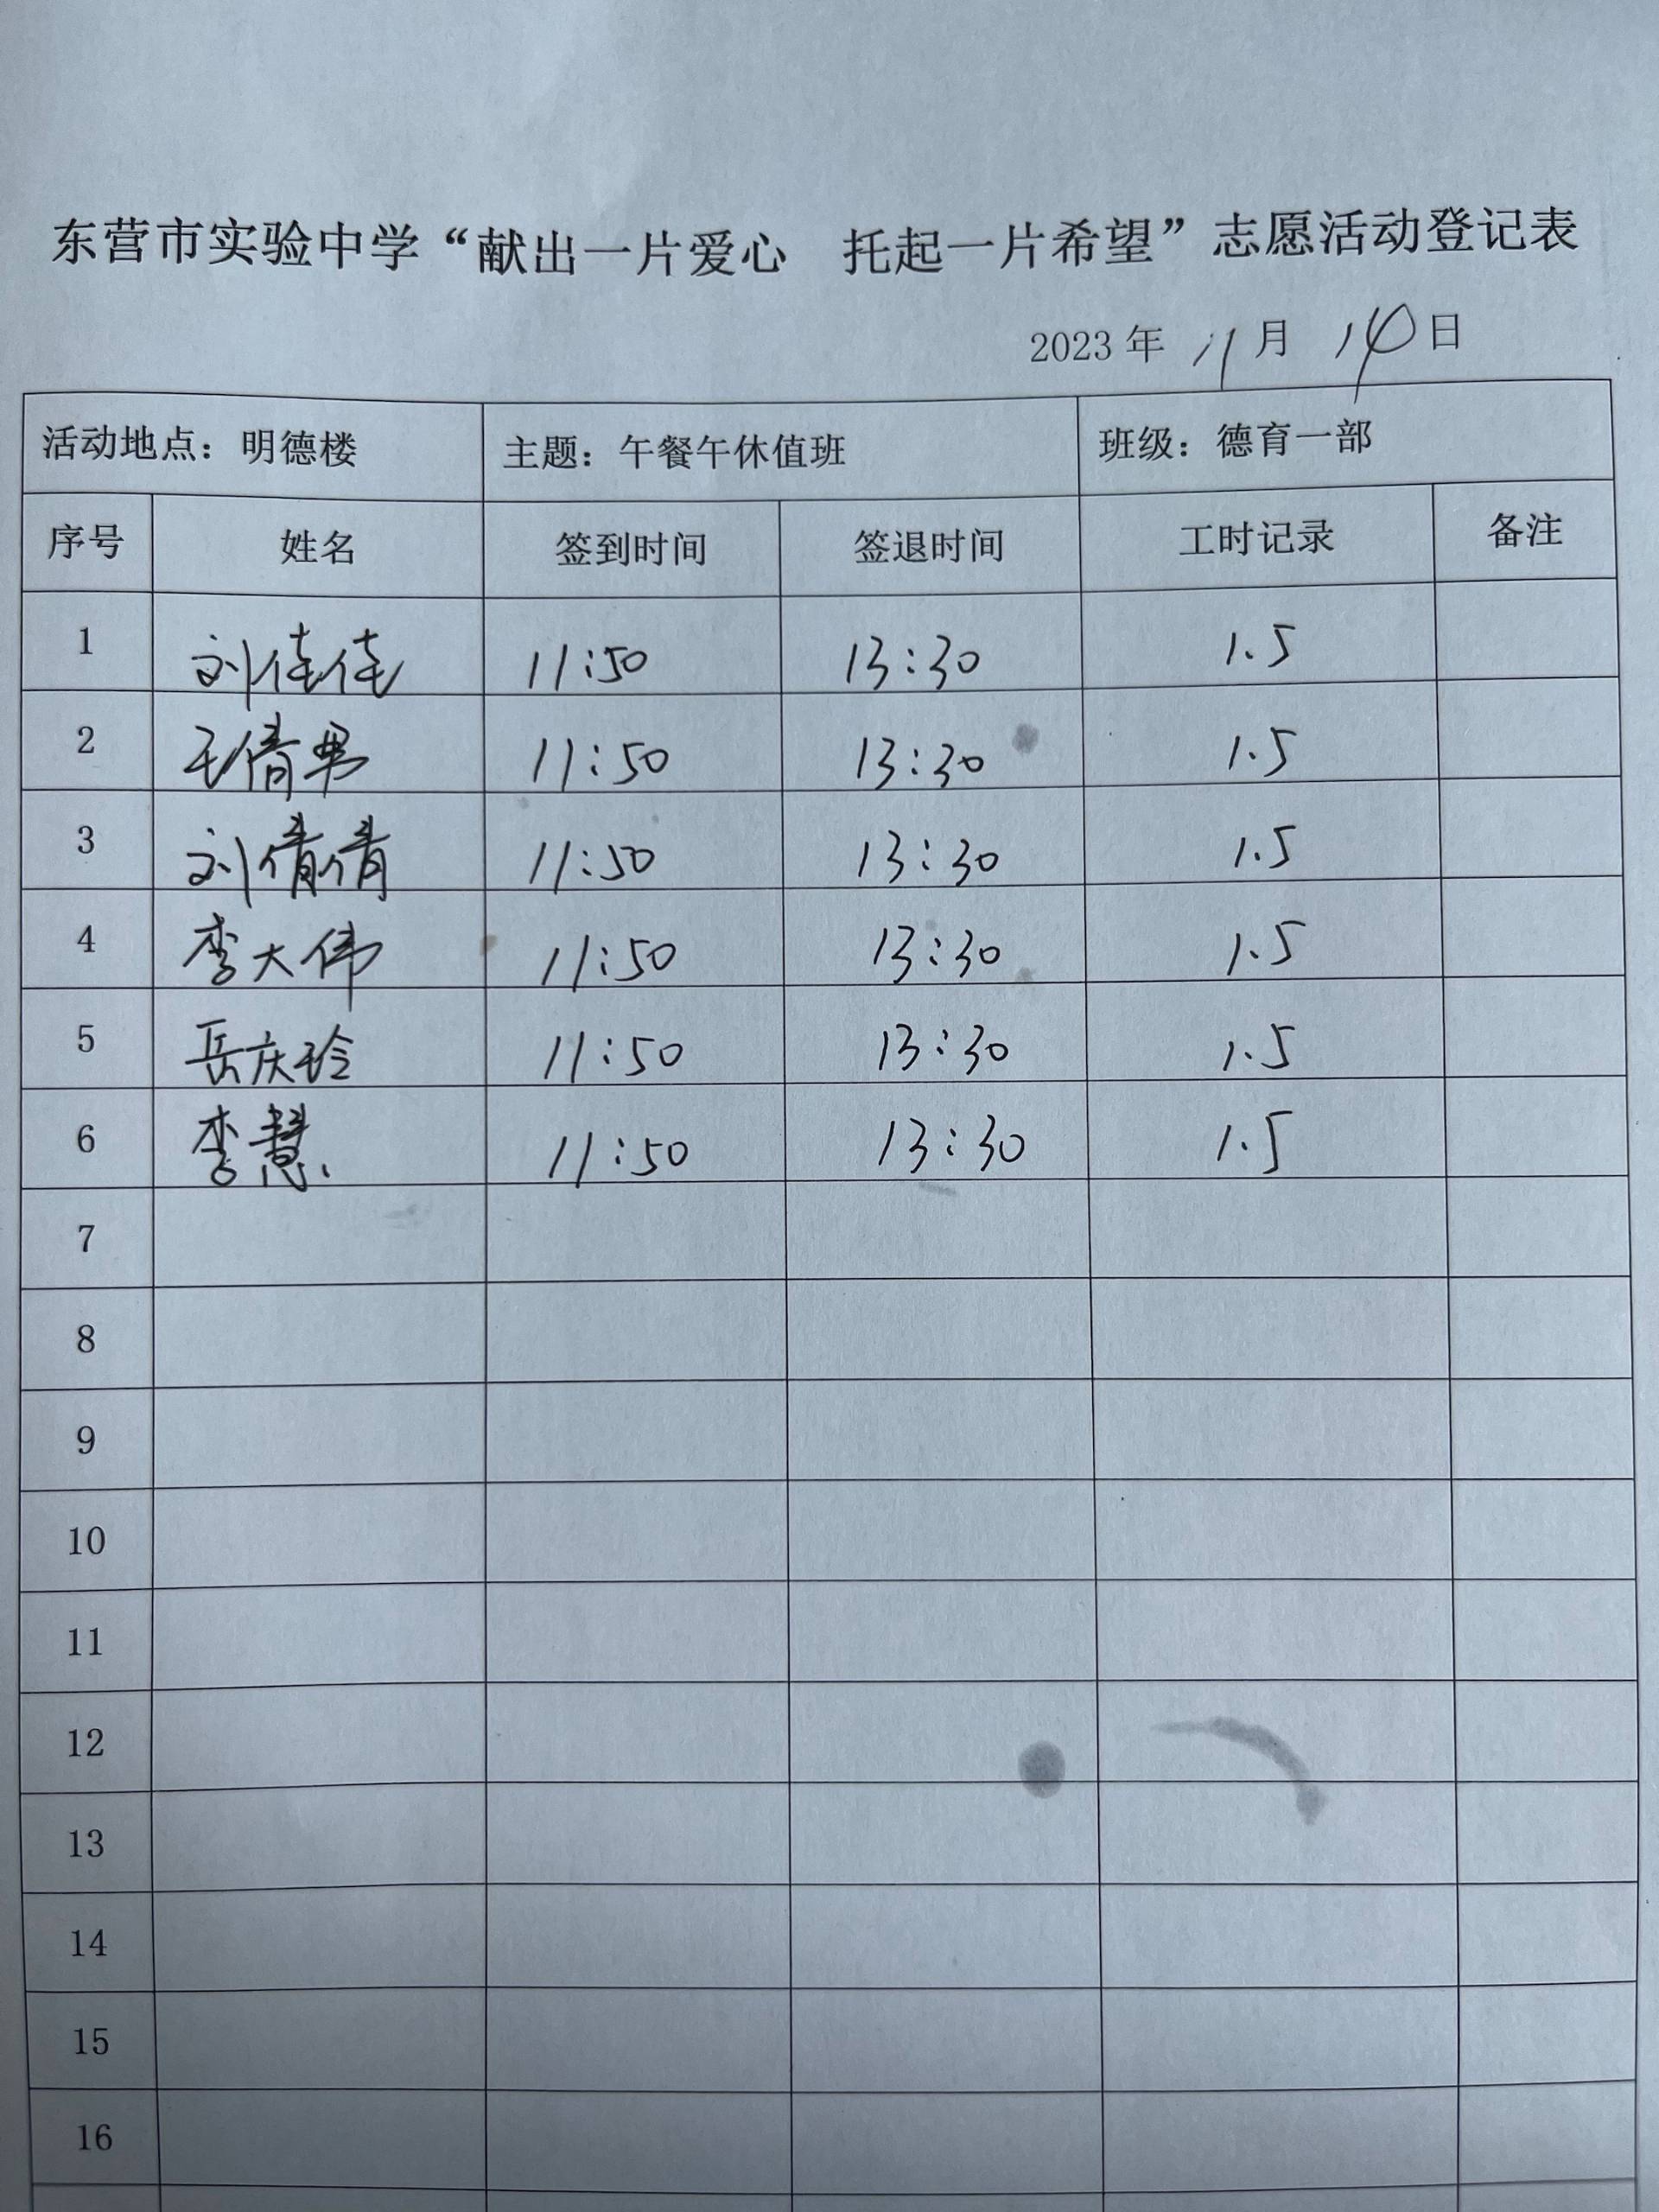 东营市实验中学“献出一片爱心 托起一片希望”志愿活动登记表
2023 年 11 月 14 日
活动地点：明德楼 主题：午餐午休值班 班级：德育一部
序号 姓名 签到时间 签退时间 工时记录 备注
1 刘佳佳 11:50 13:30 1.5
2 王倩男 11:50 13:30 1.5
3 刘倩倩 11:50 13:30 1.5
4 李大伟 11:50 13:30 1.5
5 岳庆玲 11:50 13:30 1.5
6 李慧 11:50 13:30 1.5
7
8
9
10
11
12
13
14
15
16